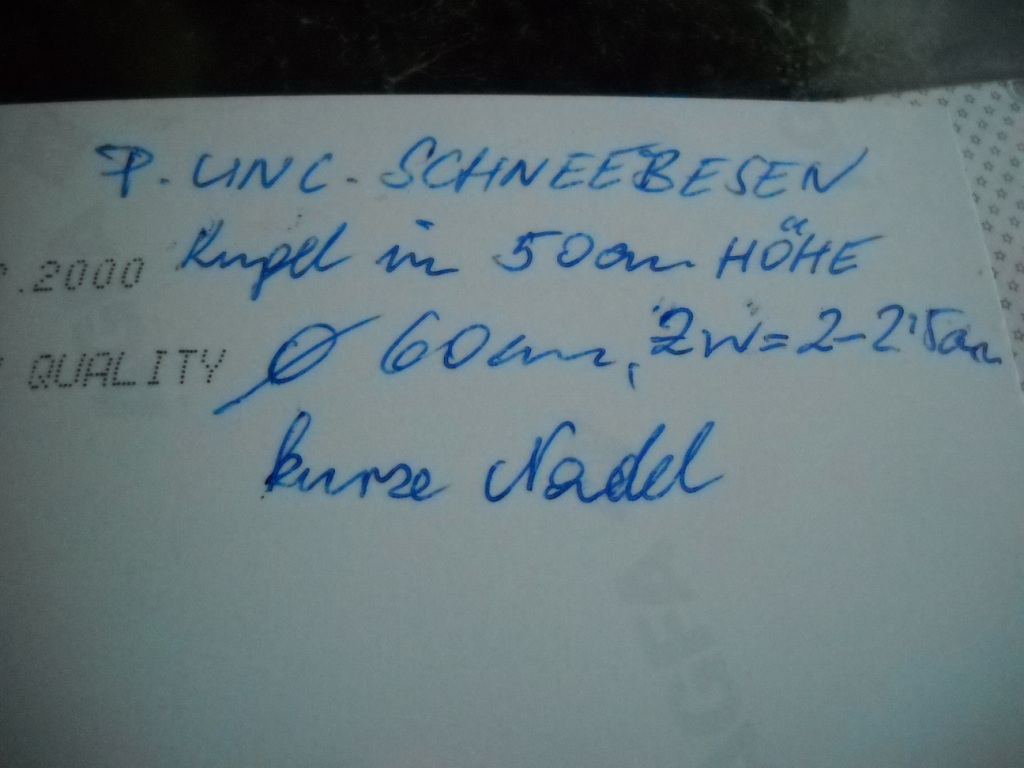 P. UNC. SCHNEEBESEN
Kugel in 50cm HÖHE
.2000
Ø 60cm, ZW=2-2'5cm
QUALITY
kurze Nadel
AGFA